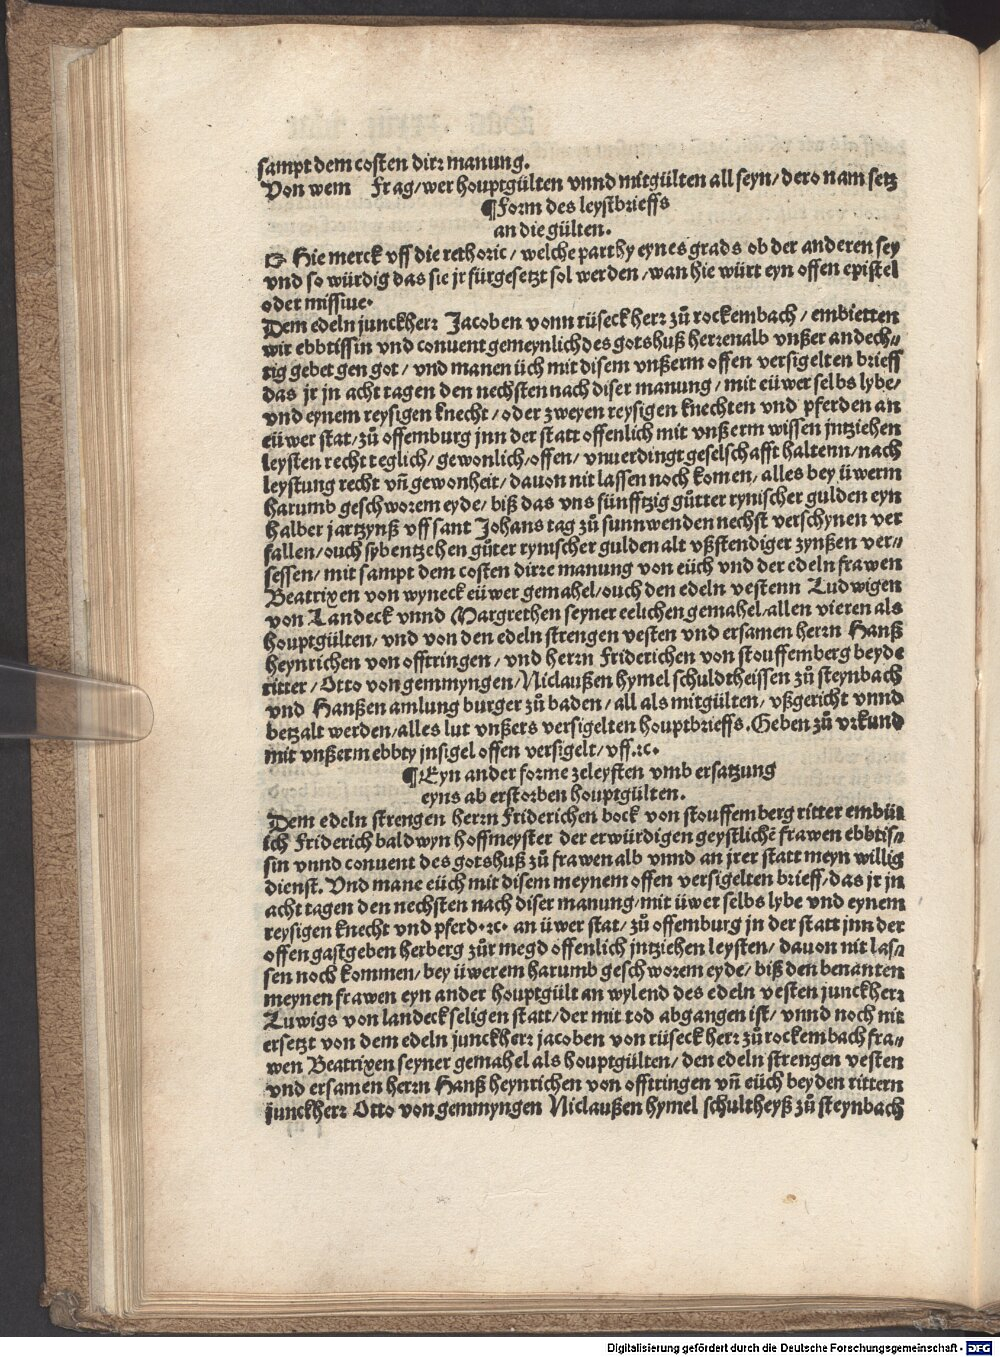 sampt dem costen dirr manung.
Von wem Frag/ wer houptgülten vnnd mitgülten all seyn/ dero nam setz
¶ Form des leystbrieffs
an die gülten.
☞ Hie merck vff die rethoric/ welche parthy eynes grads ob der anderen sey
vnd so würdig das sie jr fürgesetzt sol werden/ wan hie würt eyn offen epistel
oder missiue.
Dem edeln junckherr Jacoben vonn rüseck herr zů rockembach/ embietten
wir ebbtissin vnd conuent gemeynlich des gotshuß herrenalb vnßer andech⸗
tig gebet gen got/ vnd manen üch mit disem vnßerm offen versigelten brieff
das jr jn acht tagen den nechsten nach diser manung/ mit eüwer selbs lybe/
vnd eynem reysigen knecht/ oder zweyen reysigen knechten vnd pferden an
eüwer stat/ zů offemburg jnn der statt offenlich mit vnßerm wissen jntziehen
leysten recht teglich/ gewonlich/ offen/ vnuerdingt geselschafft haltenn/ nach
leystung recht vñ gewonheit/ dauon nit lassen noch komen/ alles bey üwerm
harumb geschworem eyde/ biß das vns fünfftzig gůtter rynischer gulden eyn
halber jartzynß vff sant Johans tag zů sunnwenden nechst verschynen ver
fallen/ ouch sybentzehen gůter rynischer gulden alt vßstendiger zynßen ver⸗
sessen/ mit sampt dem costen dirre manung von eüch vnd der edeln frawen
Beatrixen von wyneck eüwer gemahel/ ouch den edeln vestenn Ludwigen
von Landeck vnnd Margrethen seyner eelichen gemahel/ allen vieren als
houptgülten/ vnd von den edeln strengen vesten vnd ersamen herrn Hanß
heynrichen von offtringen/ vnd herrn Friderichen von stouffemberg beyde
ritter/ Otto von gemmyngen/ Niclaußen hymel schuldtheissen zů steynbach
vnd Hanßen amlung burger zů baden/ all als mitgülten/ vßgericht vnnd
betzalt werden/ alles lut vnßers versigelten houptbrieffs. Geben zů vrkund
mit vnßerm ebbty jnsigel offen versigelt/ vff. ꝛc.
¶ Eyn ander forme zeleysten vmb ersatzung
eyns ab erstorben houptgülten.
Dem edeln strengen herrn Friderichen bock von stouffemberg ritter embüt
ich Friderich baldwyn hoffmeyster der erwürdigen geystlichē frawen ebbtis⸗
sin vnnd conuent des gotshuß zů frawenalb vnnd an jrer statt meyn willig
dienst. Vnd mane eüch mit disem meynem offen versigelten brieff/ das jr jn
acht tagen den nechsten nach diser manung/ mit üwer selbs lybe vnd eynem
reysigen knecht vnd pferd. ꝛc. an üwer stat/ zů offemburg jn der statt jnn der
offen gastgeben herberg zůr megd offenlich jntziehen leysten/ dauon nit las⸗
sen noch kommen/ bey üwerem harumb geschworem eyde/ biß den benanten
meynen frawen eyn ander houptgült an wylend des edeln vesten junckherr
Luwigs von landeck seligen statt/ der mit tod abgangen ist/ vnnd noch nit
ersetzt von dem edeln junckherr jacoben von rüseck herr zů rockembach fra⸗
wen Beatrixen seyner gemahel als houptgülten/ den edeln strengen vesten
vnd ersamen herrn Hanß heynrichen von offtringen vñ eüch beyden rittern
junckherr Otto von gemmyngen Niclaußen hymel schultheyß zů steynbach
Digitalisierung gefördert durch die Deutsche Forschungsgemeinschaft - DFG